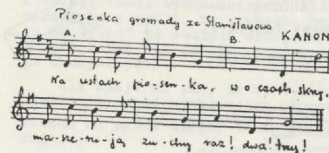 Piosenka gromady ze Stanisławowa
KANON
A. B.
Na ustach pio-sen-ka, w oczach skry,
ma-sze-ru-ją zu-chy raz! dwa! trzy!